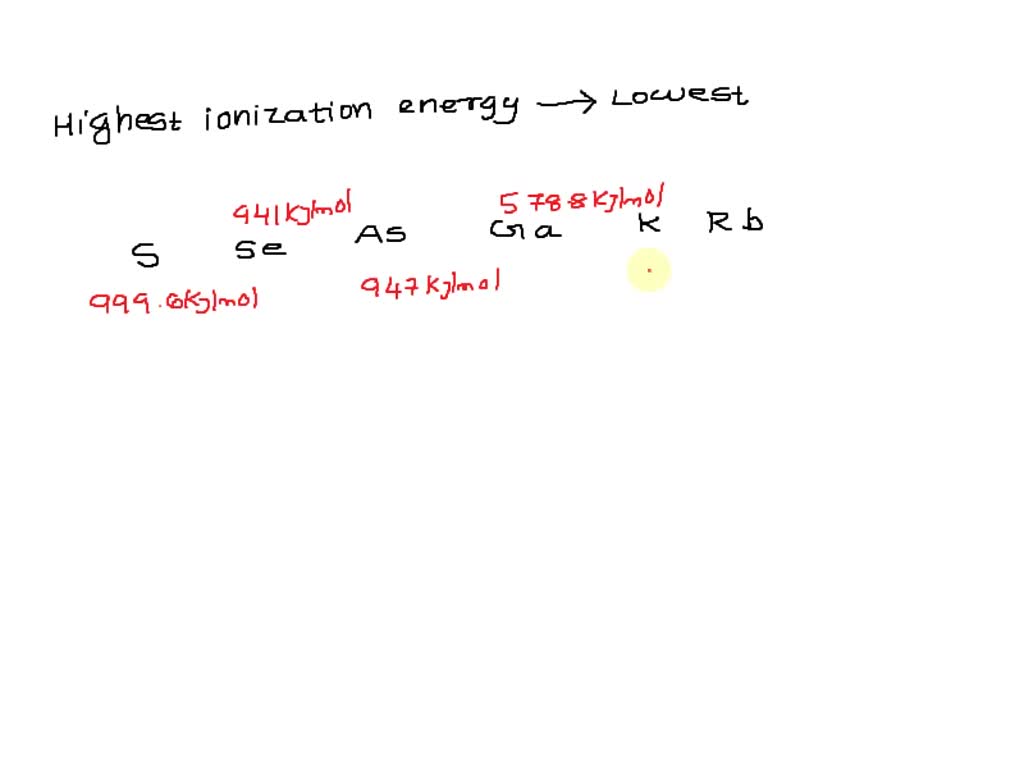 Highest ionization energy → Lowest
941KJ/mol 578.8KJ/mol
S Se As Ga K Rb
999.6KJ/mol 947KJ/mol